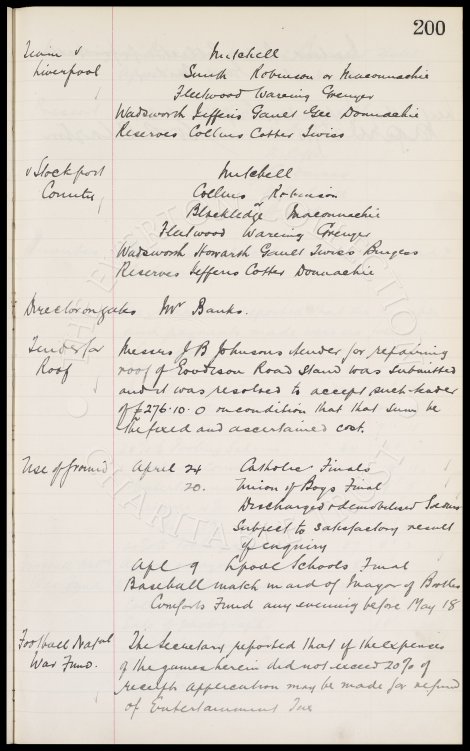 200
Team v Mitchell
Liverpool Smith Robinson or Maconnachie
Fleetwood Wareing Grenyer
Wadsworth Jefferis Gault Gee Donnachie
Reserves Collins Cotter Swiss
v Stockport Mitchell
County Collins Robinson
Blackledge or Maconnachie
Fleetwood Wareing Grenyer
Wadsworth Howarth Gault Swiss Burgess
Reserves Jefferis Cotter Donnachie
Director on gates Mr Banks.
Tender for Messrs J B Johnsons tender for repairing
Roof roof of Goodison Road Stand was submitted
and it was resolved to accept such tender
of £276.10.0 on condition that that sum be
the fixed and ascertained cost.
Use of ground April 24 Catholic Finals
20. Union of Boys Final
Discharged & demobilised
Subject to satisfactory result
of enquiry
Apl 9 Lpool Schools Final
Baseball match in aid of Mayor of Bootles
Comforts Fund any evening before May 18
Football Natnl The Secretary reported that if the expenses
War Fund. of the games herein did not exceed 20% of
receipts application may be made for refund
of Entertainment Tax